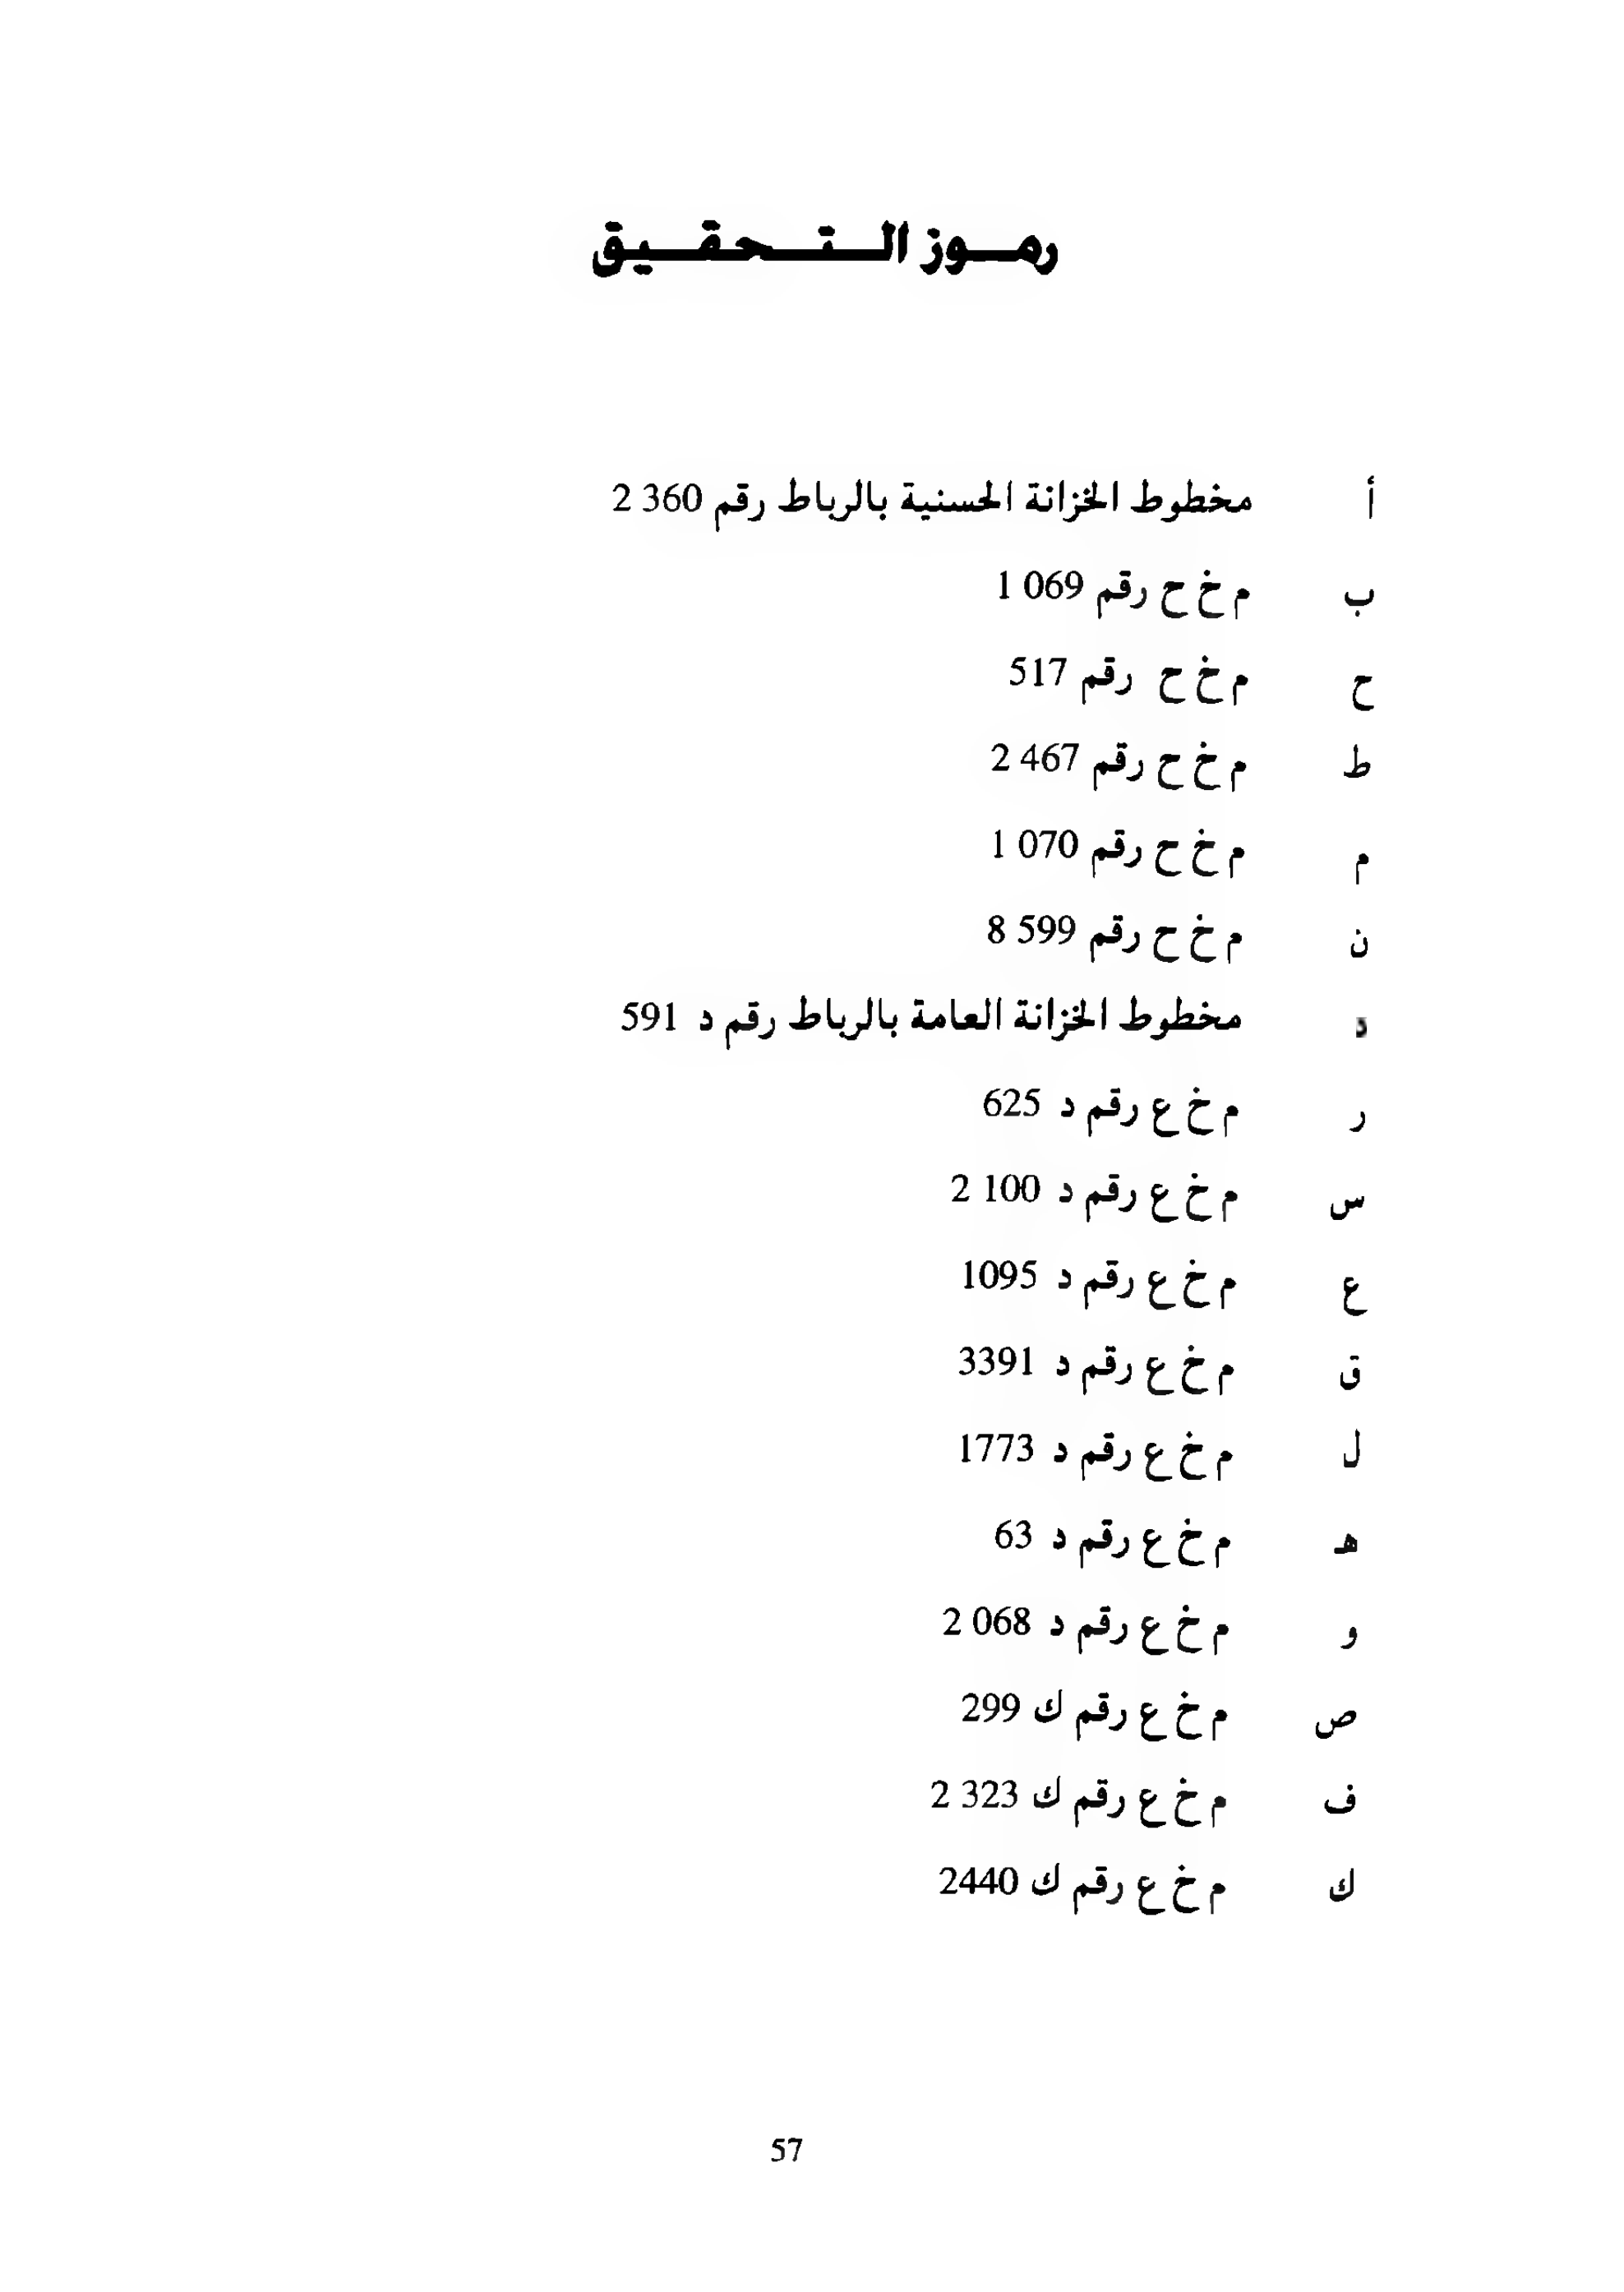 رموز التحقيق
أ مخطوط الخزانة الحسنية بالرباط رقم 360 2
ب م خ ح رقم 069 1
ح م خ ح رقم 517
ط م خ ح رقم 467 2
م م خ ح رقم 070 1
ن م خ ح رقم 599 8
د مخطوط الخزانة العامة بالرباط رقم د 591
ر م خ ع رقم د 625
س م خ ع رقم د 100 2
ع م خ ع رقم د 1095
ق م خ ع رقم د 3391
ل م خ ع رقم د 1773
هـ م خ ع رقم د 63
و م خ ع رقم د 068 2
ص م خ ع رقم ك 299
ف م خ ع رقم ك 323 2
ك م خ ع رقم ك 2440
57